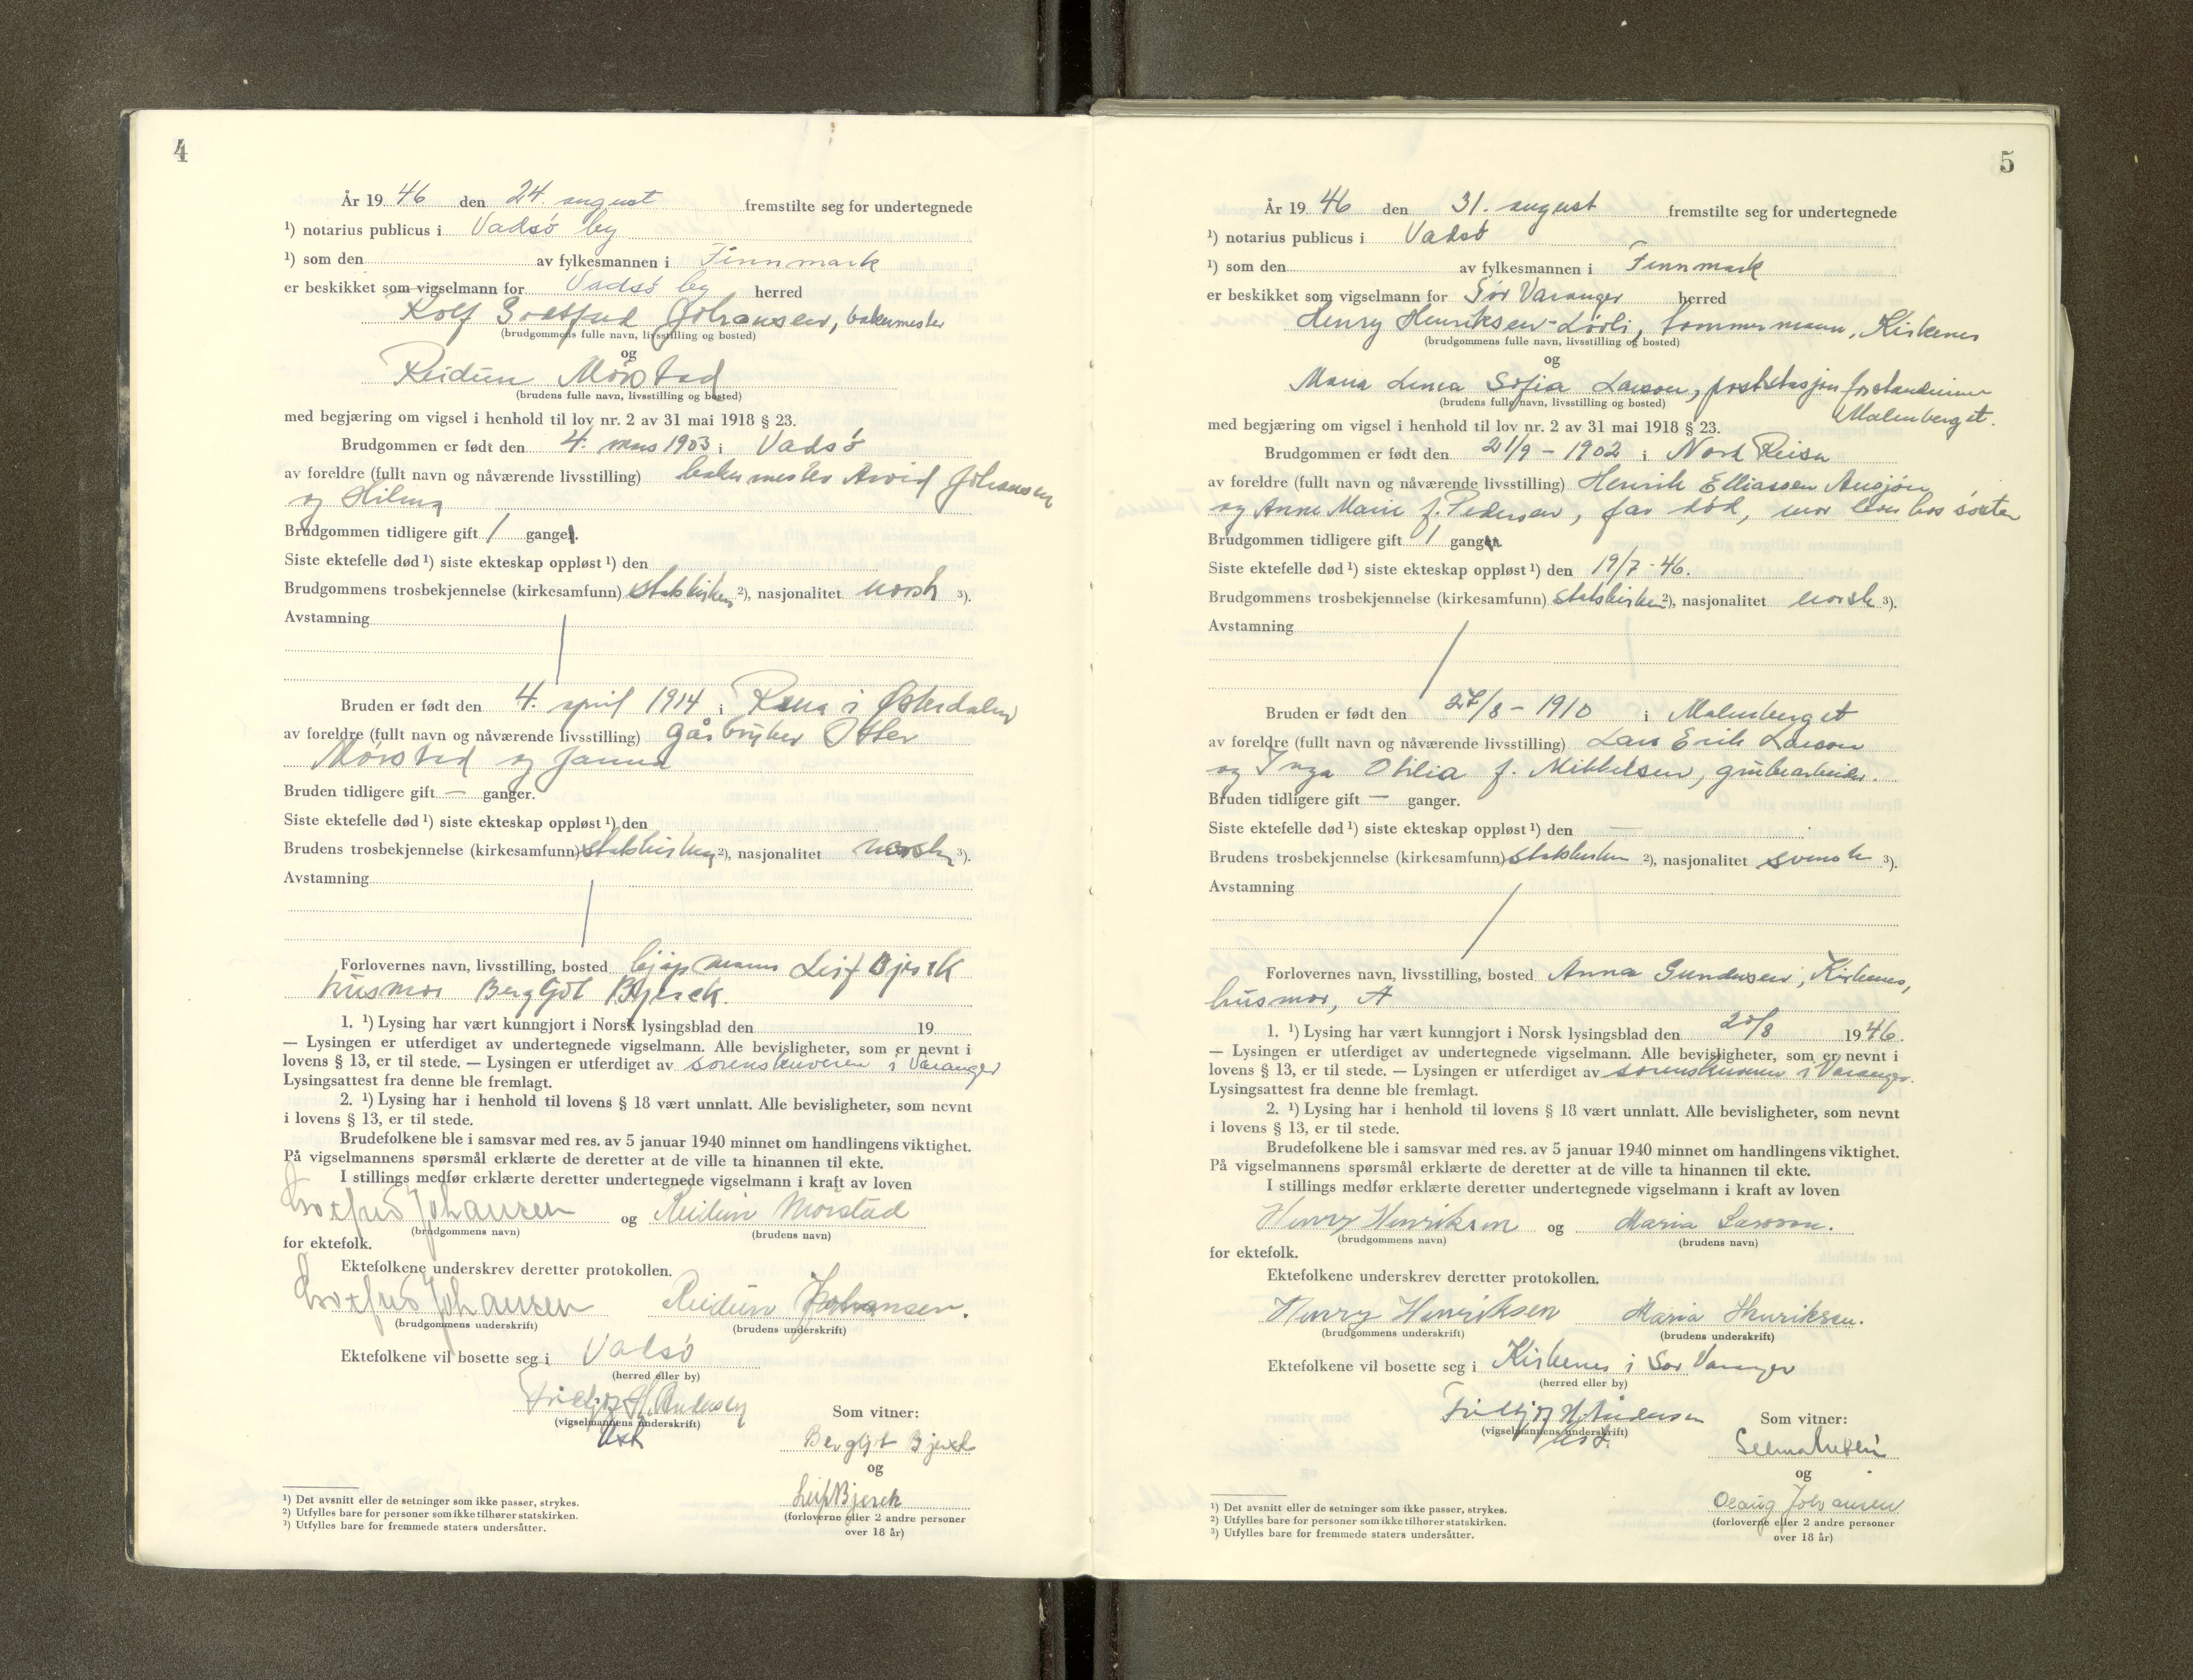 4
År 19 46 den 24. august fremstilte seg for undertegnede
¹) notarius publicus i Vadsö by
¹) som den av fylkesmannen i Finnmark
er beskikket som vigselmann for Vadsö by herred
Rolf Johansen, bakermester
(brudgommens fulle navn, livsstilling og bosted)
og
Reidun Mörstad
(brudens fulle navn, livsstilling og bosted)
med begjæring om vigsel i henhold til lov nr. 2 av 31 mai 1918 § 23.
Brudgommen er født den 4. mars 1903 i Vadsö
av foreldre (fullt navn og nåværende livsstilling) bakermester Arvid Johansen
og Hilma
Brudgommen tidligere gift 1 gange.
Siste ektefelle død ¹) siste ekteskap oppløst ¹) den
Brudgommens trosbekjennelse (kirkesamfunn) statskirken ²), nasjonalitet norsk ³).
Avstamning
Bruden er født den 4. april 1914 i Rena i Østerdalen
av foreldre (fullt navn og nåværende livsstilling) gårbruker
Mörstad og Janna
Bruden tidligere gift — ganger.
Siste ektefelle død ¹) siste ekteskap oppløst ¹) den
Brudens trosbekjennelse (kirkesamfunn) statskirken ²), nasjonalitet norsk ³).
Avstamning
Forlovernes navn, livsstilling, bosted kjöpmann Leif Bjerck
husmor Bergljot Bjerck.
1. ¹) Lysing har vært kunngjort i Norsk lysingsblad den 19
— Lysingen er utferdiget av undertegnede vigselmann. Alle bevisligheter, som er nevnt i
lovens § 13, er til stede. — Lysingen er utferdiget av sorenskriveren i Varanger
Lysingsattest fra denne ble fremlagt.
2. ¹) Lysing har i henhold til lovens § 18 vært unnlatt. Alle bevisligheter, som nevnt
i lovens § 13, er til stede.
Brudefolkene ble i samsvar med res. av 5 januar 1940 minnet om handlingens viktighet.
På vigselmannens spørsmål erklærte de deretter at de ville ta hinannen til ekte.
I stillings medfør erklærte deretter undertegnede vigselmann i kraft av loven
Johansen og Reidun Mörstad
(brudgommens navn) (brudens navn)
for ektefolk.
Ektefolkene underskrev deretter protokollen.
Johansen Reidun Johansen.
(brudgommens underskrift) (brudens underskrift)
Ektefolkene vil bosette seg i Vadsö
(herred eller by)
Fridtjof H. Andersen
(vigselmannens underskrift)
Som vitner:
Bergljot Bjerck
og
Leif Bjerck
(forloverne eller 2 andre personer
over 18 år)
¹) Det avsnitt eller de setninger som ikke passer, strykes.
²) Utfylles bare for personer som ikke tilhører statskirken.
³) Utfylles bare for fremmede staters undersåtter.
5
År 19 46 den 31. august fremstilte seg for undertegnede
¹) notarius publicus i Vadsö
¹) som den av fylkesmannen i Finnmark
er beskikket som vigselmann for Sör Varanger herred
Henry Henriksen-Lövli, tömmermann, Kirkenes
(brudgommens fulle navn, livsstilling og bosted)
og
Maria Linea Sofia Larson, poststasjonforstanderinne
(brudens fulle navn, livsstilling og bosted)
Malmberget.
med begjæring om vigsel i henhold til lov nr. 2 av 31 mai 1918 § 23.
Brudgommen er født den 21/9 - 1902 i Nord Reisa
av foreldre (fullt navn og nåværende livsstilling) Henrik Elliassen
og Anne Marie f. Pedersen, far död, mor lever hos söster
Brudgommen tidligere gift 1 gang.
Siste ektefelle død ¹) siste ekteskap oppløst ¹) den 19/7 - 46.
Brudgommens trosbekjennelse (kirkesamfunn) statskirken ²), nasjonalitet norsk ³).
Avstamning
Bruden er født den 27/8 - 1910 i Malmberget
av foreldre (fullt navn og nåværende livsstilling) Lars Erik Larson
og Inga Otilia f. Mikkelsen, grubearbeider.
Bruden tidligere gift — ganger.
Siste ektefelle død ¹) siste ekteskap oppløst ¹) den —
Brudens trosbekjennelse (kirkesamfunn) statskirken ²), nasjonalitet svensk ³).
Avstamning
Forlovernes navn, livsstilling, bosted Anna Gundersen, Kirkenes,
husmor, A
1. ¹) Lysing har vært kunngjort i Norsk lysingsblad den 20/8 1946.
— Lysingen er utferdiget av undertegnede vigselmann. Alle bevisligheter, som er nevnt i
lovens § 13, er til stede. — Lysingen er utferdiget av sorenskriveren i Varanger.
Lysingsattest fra denne ble fremlagt.
2. ¹) Lysing har i henhold til lovens § 18 vært unnlatt. Alle bevisligheter, som nevnt
i lovens § 13, er til stede.
Brudefolkene ble i samsvar med res. av 5 januar 1940 minnet om handlingens viktighet.
På vigselmannens spørsmål erklærte de deretter at de ville ta hinannen til ekte.
I stillings medfør erklærte deretter undertegnede vigselmann i kraft av loven
Henry Henriksen og Maria Larsson.
(brudgommens navn) (brudens navn)
for ektefolk.
Ektefolkene underskrev deretter protokollen.
Henry Henriksen Maria Henriksen.
(brudgommens underskrift) (brudens underskrift)
Ektefolkene vil bosette seg i Kirkenes i Sör Varanger
(herred eller by)
Fridtjof H. Andersen
(vigselmannens underskrift)
Som vitner:
og
Olaug Johansen
(forloverne eller 2 andre personer
over 18 år)
¹) Det avsnitt eller de setninger som ikke passer, strykes.
²) Utfylles bare for personer som ikke tilhører statskirken.
³) Utfylles bare for fremmede staters undersåtter.